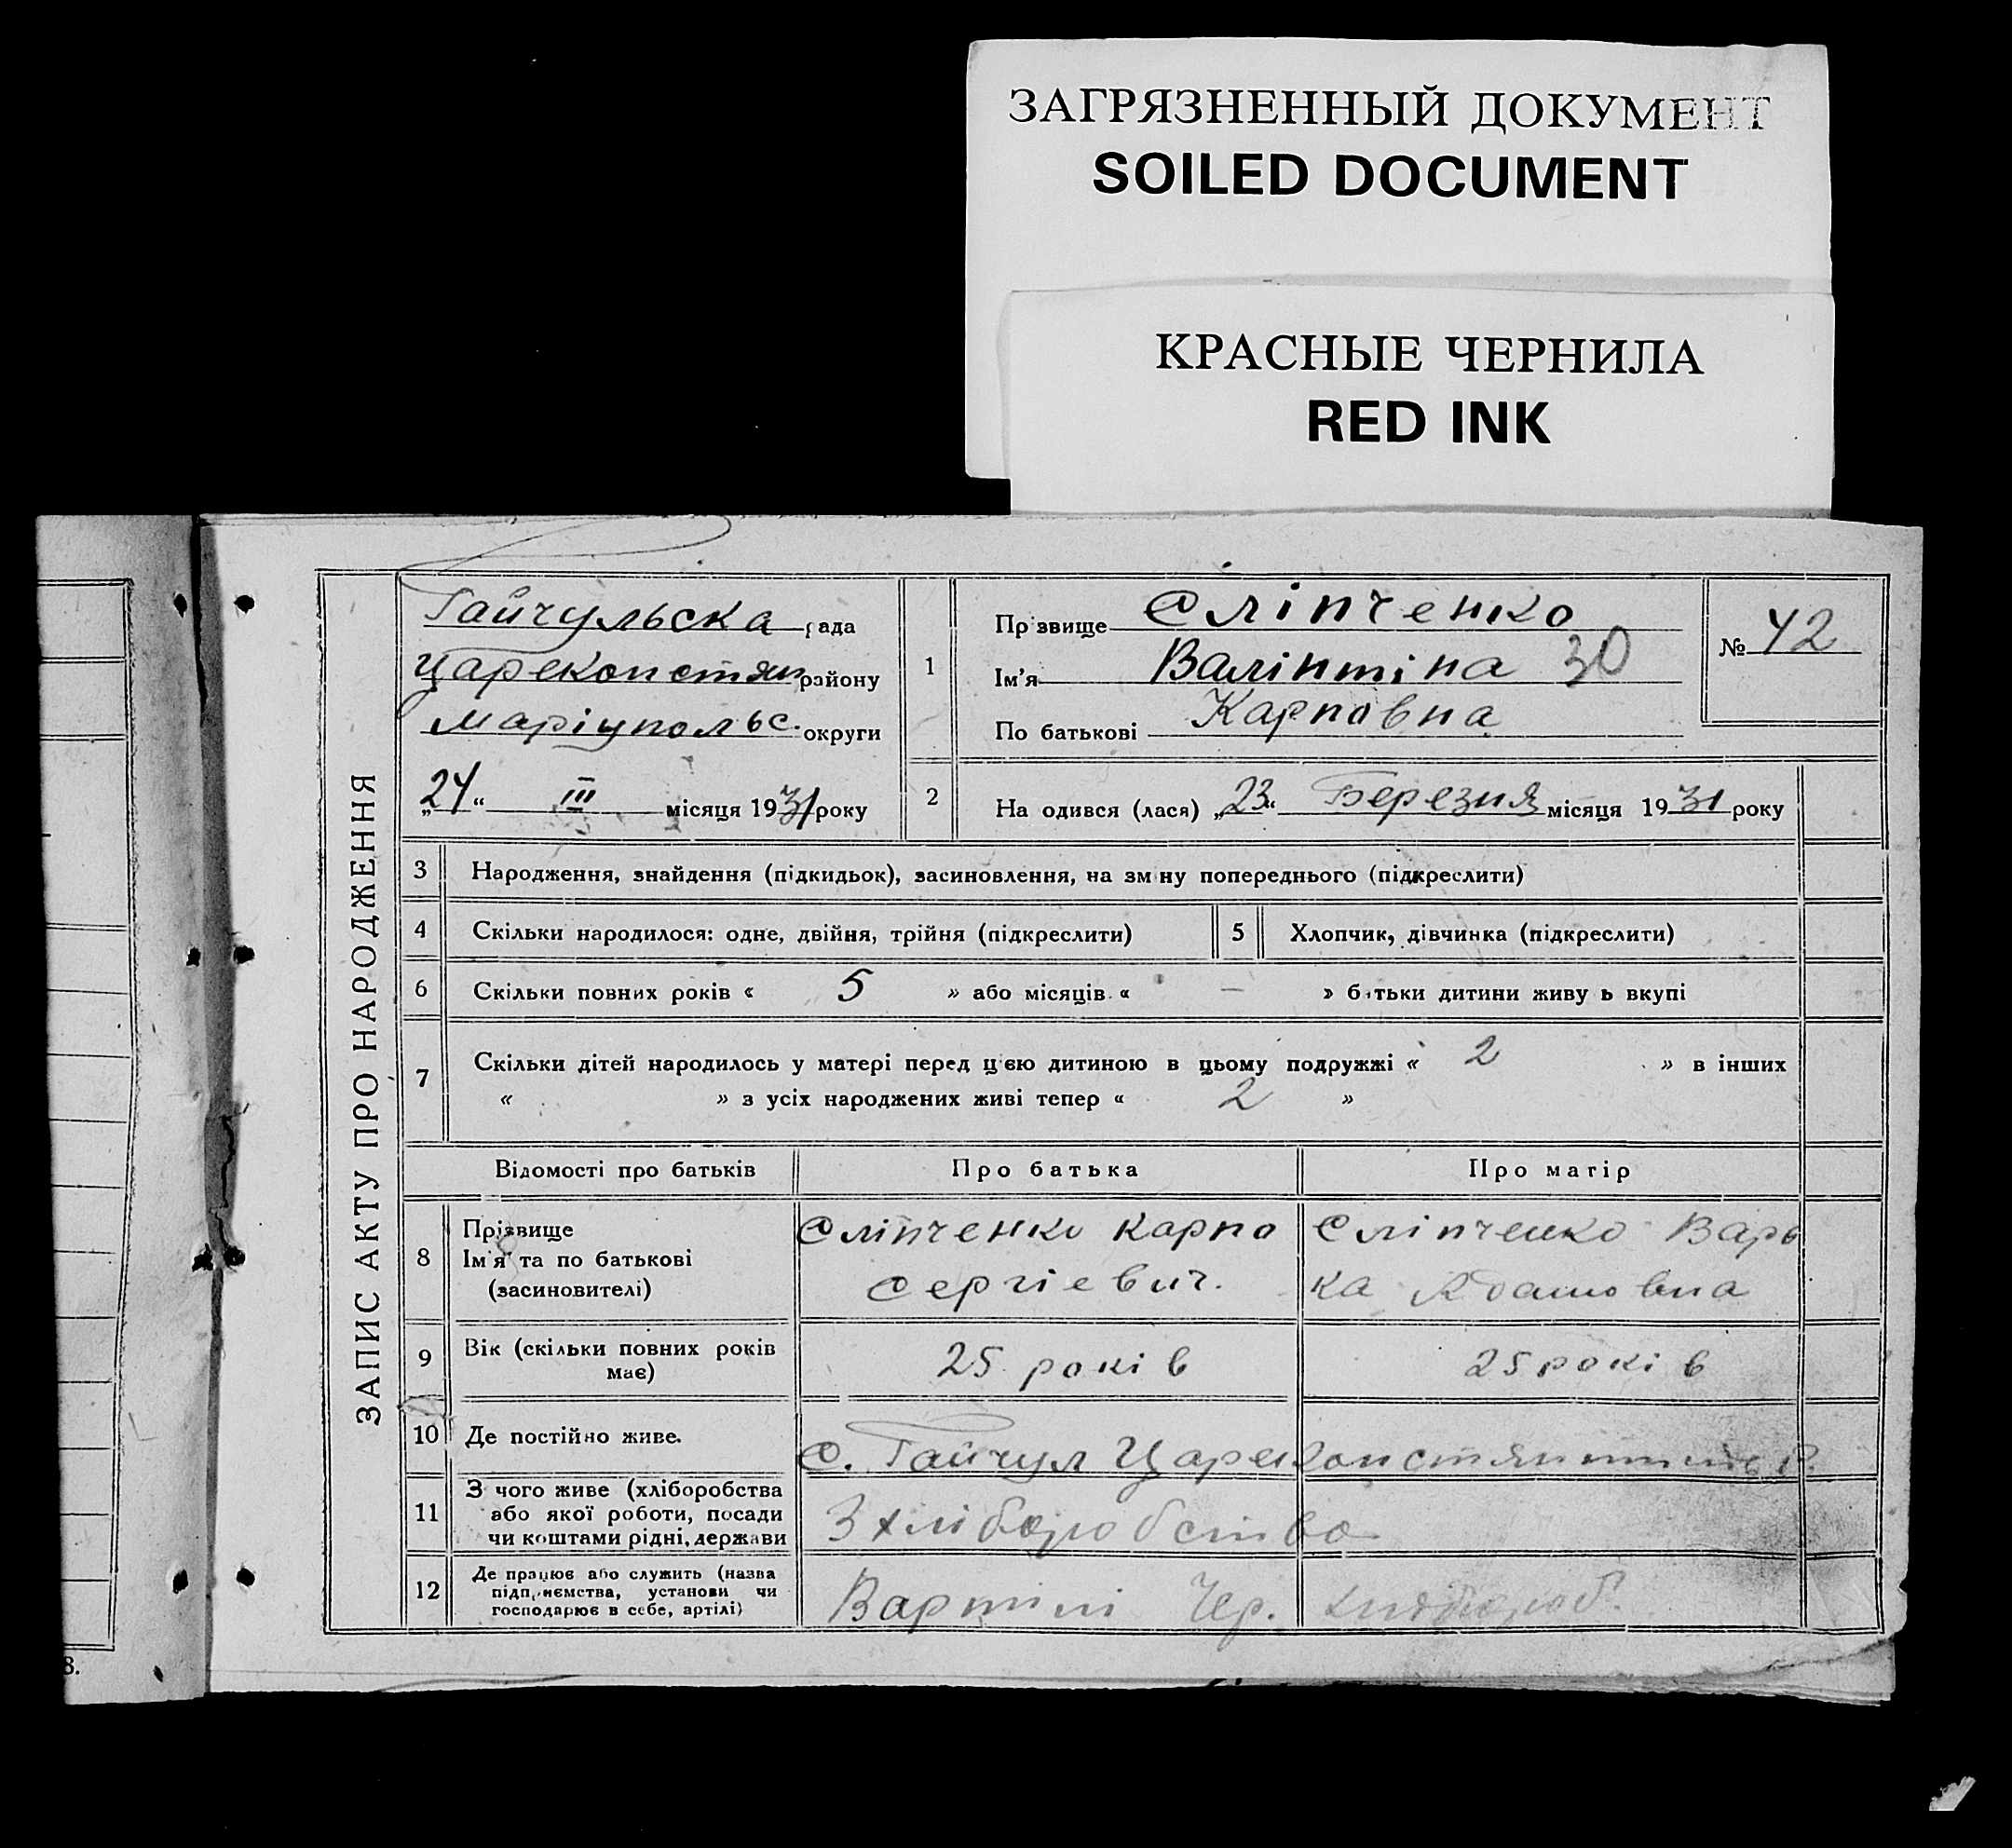 ЗАГРЯЗНЕННЫЙ ДОКУМЕНТ
SOILED DOCUMENT
КРАСНЫЕ ЧЕРНИЛА
RED INK
ЗАПИС АКТУ ПРО НАРОДЖЕННЯ
Гайчульска рада
Царекопстян району
Маріупольс. округи
„24“ III місяця 1931 року
1
Прізвище Сліпченко
Ім'я Валінтіна 30
По батькові Карповна
№ 42
2
На одився (лася) „23“ Березня місяця 1931 року
3 Народження, знайдення (підкидьок), засиновлення, на зміну попереднього (підкреслити)
4 Скільки народилося: одне, двійня, трійня (підкреслити) 5 Хлопчик, дівчинка (підкреслити)
6 Скільки повних років « 5 » або місяців « — » батьки дитини живу ь вкупі
7 Скільки дітей народилось у матері перед цією дитиною в цьому подружжі « 2 » в інших
« » з усіх народжених живі тепер « 2 »
Відомості про батьків Про батька Про матір
8 Прізвище
Ім'я та по батькові
(засиновителі)
Сліпченко Карпо
Сергіевич.
Сліпченко Варь
ка Адамовна
9 Вік (скільки повних років
має)
25 років
25 років
10 Де постійно живе.
с. Гайчул
11 З чого живе (хліборобства
або якої роботи, посади
чи коштами рідні, держави
З хліборобства
12 Де працює або служить (назва
підприємства, установи чи
господарює в себе, артілі)
Вартілі Чер. хлібороб.
8.